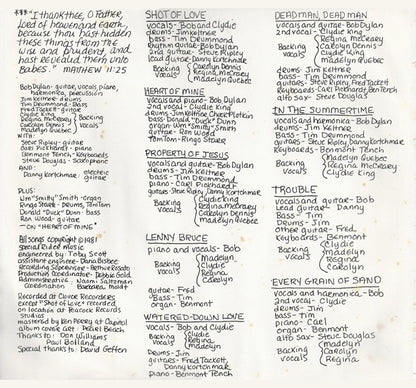 "I thank thee, O Father,
lord of heaven and earth,
because thou hast hidden
these things from the
wise and prudent, and
hast revealed them unto
babes." MATTHEW 11:25
Bob Dylan- guitar, vocals, piano,
harmonica, percussion
Jim Keltner- drums
Tim Drummond- Bass
Fred Tackett- guitar
Clydie King
Regina McCreary
Carolyn Dennis
Madelyn Quebec
Backing vocals
WITH:
Steve Ripley- guitar
Carl Pickhardt- piano
Benmont Tench- keyboards
Steve Douglas- saxophone
AND:
Danny Kortchmar- electric guitar
PLUS:
Wm "Smitty" Smith- organ
Ringo Starr- drums, Tom Tom
Donald "Duck" Dunn- bass
Ron Wood- guitar
- on "HEART OF MINE"
All songs copyright © 1981
Special Rider Music
engineered by: Toby Scott
assistant engineer: Dana Bisbee
Recording Supervisor:
Production Coordinator: Debbie Gold
Administrative Coordination: Naomi Saltzman
Recorded at Clover Recorders
except "Shot of Love" recorded
on location at Peacock Records
studios
mastered by Ken Perry at Capitol
album cover art: Pearl Beach
Thanks to: Don Williams
Paul Bolland
Special thanks to: David Geffen
SHOT OF LOVE
vocals- Bob and Clydie
drums- Jim Keltner
bass- Tim Drummond
rhythm guitar- Bob Dylan
2nd guitar- Steve Ripley
lead guitar- Danny Kortchmar
Backing vocals
Carolyn Dennis
Regina McCreary
Madelyn Quebec
HEART OF MINE
vocals and piano- Bob Dylan
2nd vocal- Clydie King
drums- Jim Keltner Chuck Plotkin
bass- Donald "Duck" Dunn
organ- Wm. "Smitty" Smith
guitar- Ron Wood
Tom Tom- Ringo Starr
PROPERTY OF JESUS
vocals and guitar- Bob Dylan
drums- Jim Keltner
bass- Tim Drummond
piano- Carl Pickhardt
guitars- Steve Ripley, Danny Kortchmar
Backing vocals
Clydie King
Regina McCreary
Carolyn Dennis
Madelyn Quebec
LENNY BRUCE
piano and vocals- Bob
Backing vocals
Madelyn
Clydie
Regina
Carolyn
guitar- Fred
Bass- Tim
organ- Benmont
WATERED-DOWN LOVE
vocals- Bob and Clydie
Backing vocals
Clydie
Regina
Madelyn
Drums- Jim
guitars- Fred Tackett,
Danny Kortchmar
piano- Benmont Tench
DEAD MAN, DEAD MAN
vocals and guitar- Bob Dylan
2nd vocal- Clydie King
Backing vocals
Regina McCreary
Carolyn Dennis
Clydie King
Madelyn Quebec
drums- Jim Keltner
bass- Tim Drummond
guitars- Steve Ripley, Fred Tackett
keyboards- Carl Pickhardt, Ben Tench
alto sax- Steve Douglas
IN THE SUMMERTIME
vocals and harmonica- Bob Dylan
drums- Jim Keltner
Bass- Tim Drummond
guitars- Steve Ripley, Danny Kortchmar
keyboards- Benmont Tench
Backing vocals
Madelyn Quebec
Regina McCreary
Clydie King
TROUBLE
vocals and guitar- Bob
Lead guitar- Danny
Bass- Tim
Drums- Jim
other guitar- Fred
keyboards- Benmont
Backing vocals
Clydie
Madelyn
Regina
Carolyn
EVERY GRAIN OF SAND
vocals and harmonica- Bob
2nd vocal- Clydie
drums- Jim
bass- Tim
piano- Carl
organ- Benmont
alto sax- Steve Douglas
Backing vocals
Madelyn
Carolyn
Regina